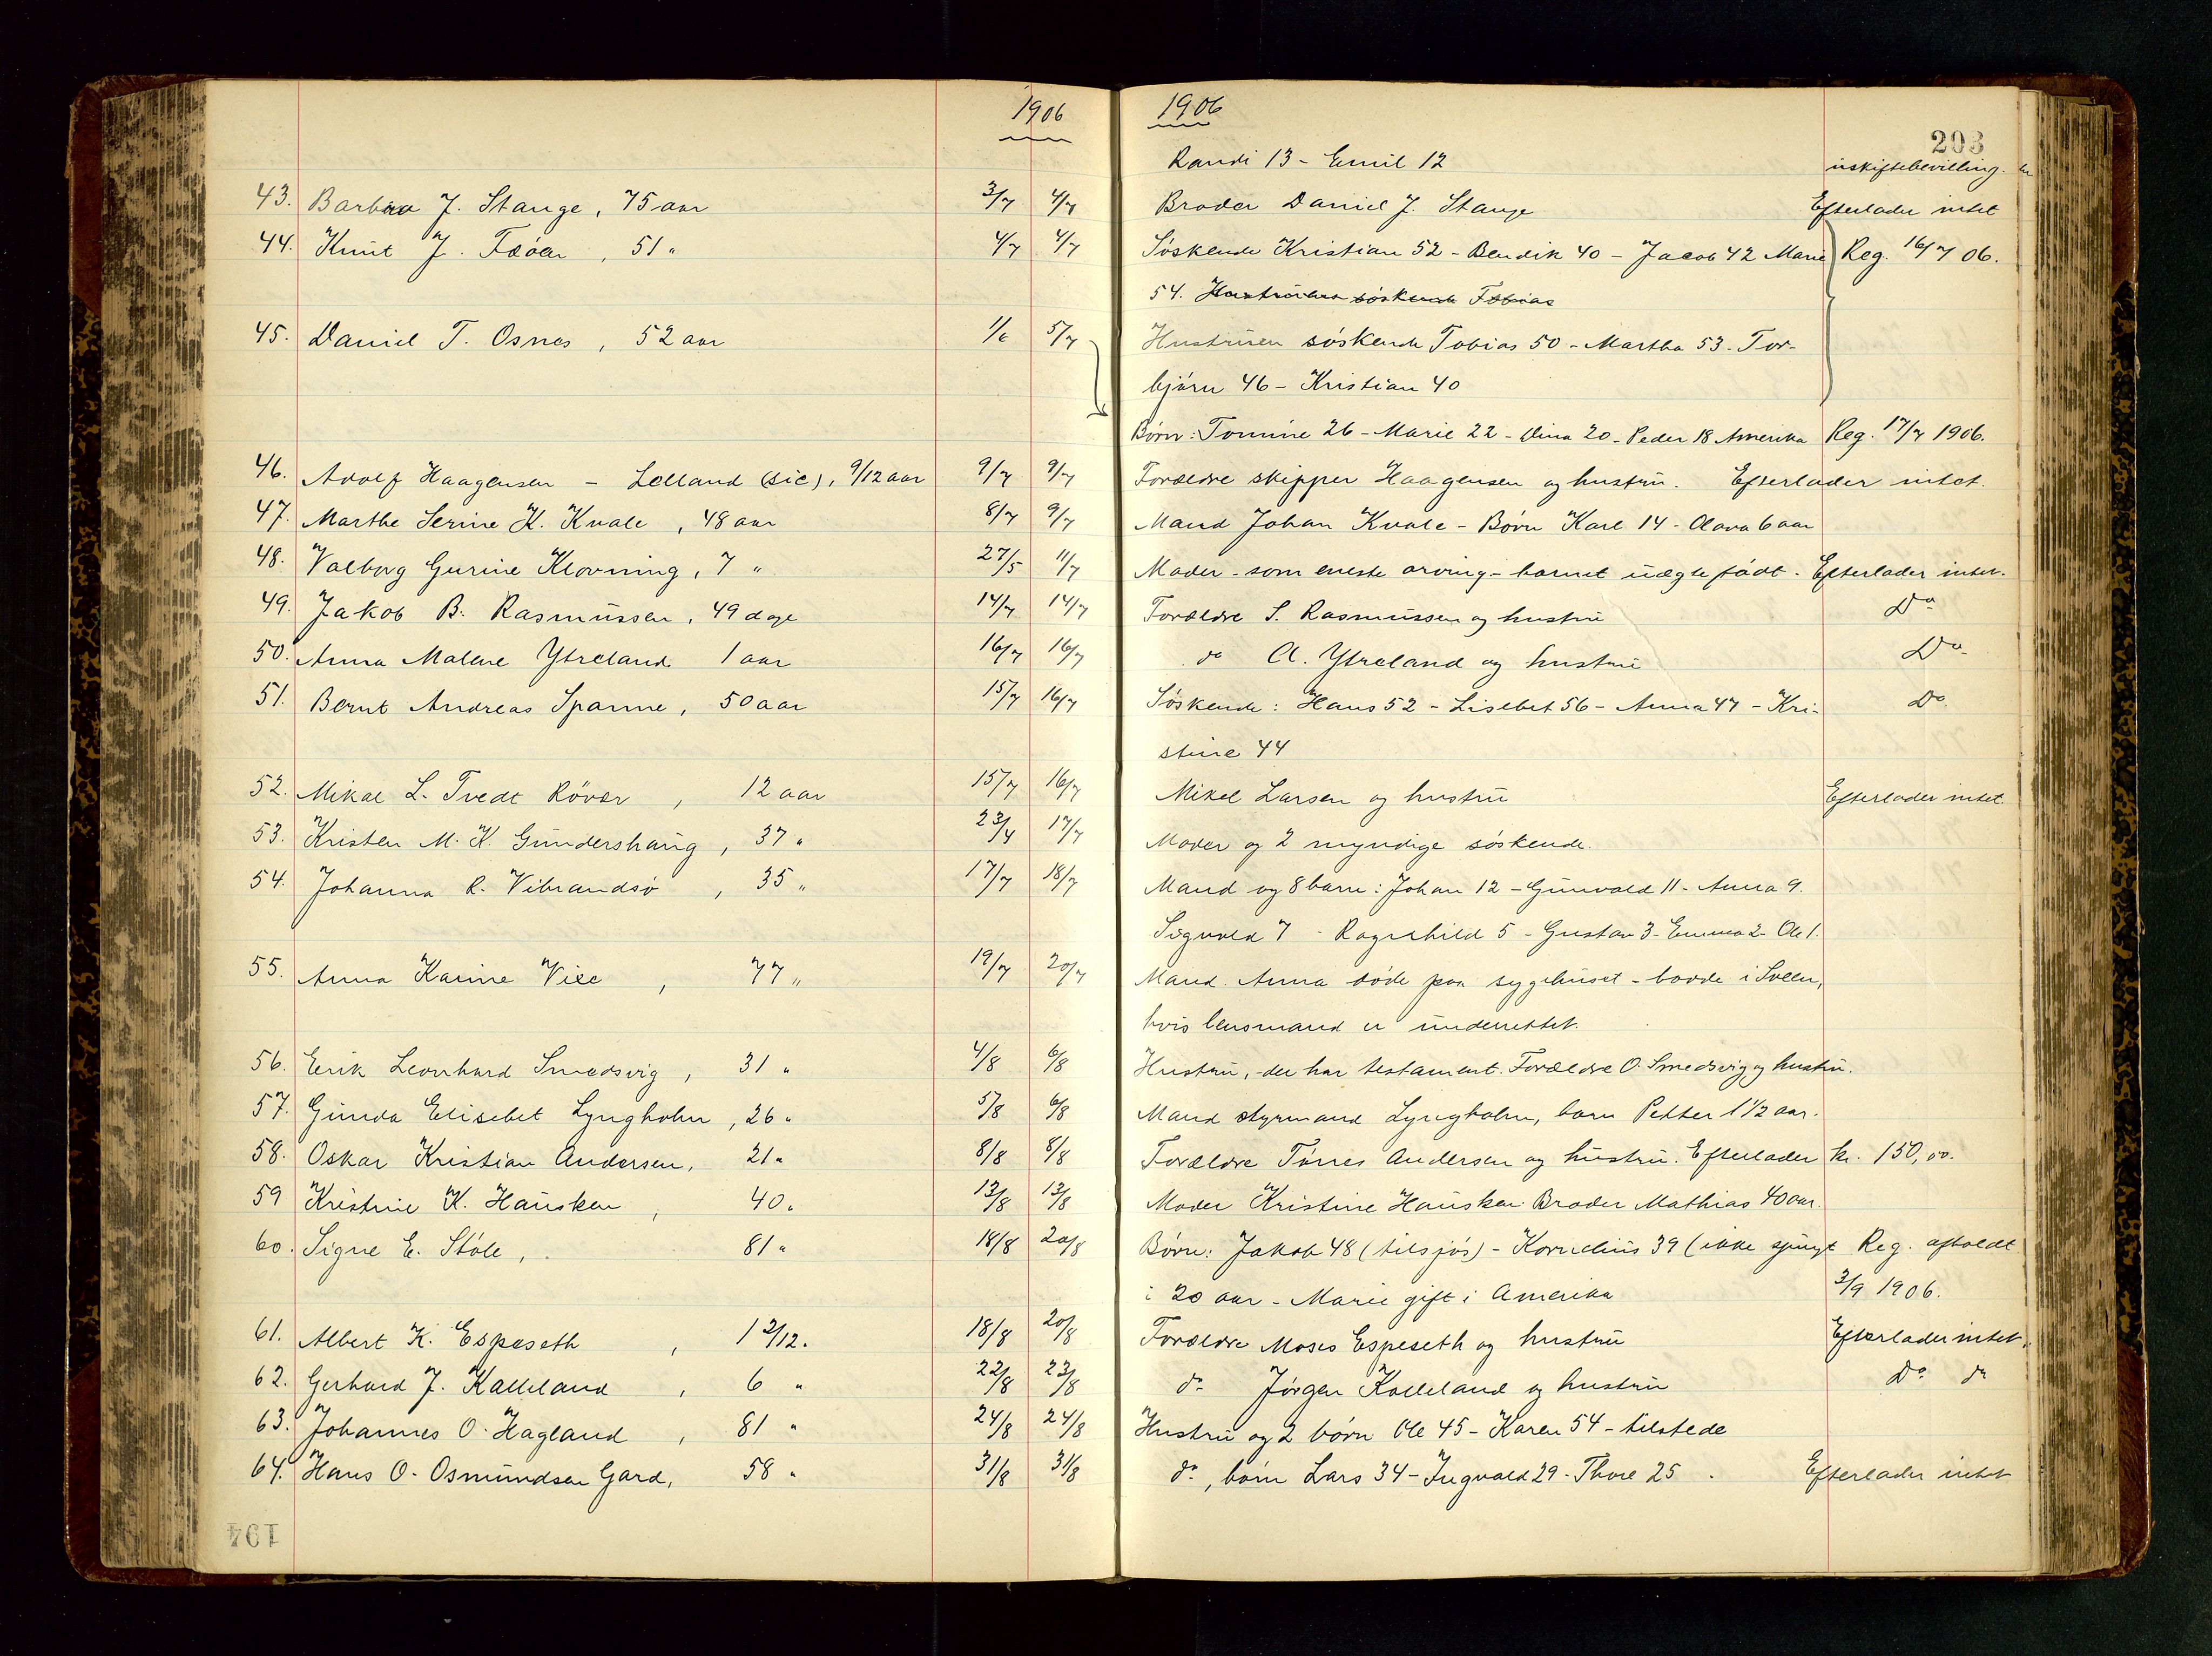 1906
43. Barbra J. Stange, 75 aar 3/7 4/7
44. Knut J. Fæøen, 51 " 4/7 4/7
45. Daniel T. Osnes, 52 aar 1/6 5/7
46. Adolf Haagensen - Lolland (sic), 9/12 aar 9/7 9/7
47. Marthe Serine K. Kvale, 48 aar 8/7 9/7
48. Valborg Gurine Klovning, 7 " 27/5 11/7
49. Jakob B. Rasmussen, 49 dage 14/7 14/7
50. Anna Malene Ytreland 1 aar 16/7 16/7
51. Bernt Andreas Spanne, 50 aar 15/7 16/7
52. Mikal L. Tvedt Røvær, 12 aar 15/7 16/7
53. Kristen M. K. Gundershaug, 37 " 23/4 17/7
54. Johanna R. Vibrandsø, 35 " 17/7 18/7
55. Anna Karine Vile, 77 " 19/7 20/7
56. Erik Leonhard Smedsvig, 31 " 4/8 6/8
57. Gunda Elisebet Lyngholm, 26 " 5/8 6/8
58. Oskar Kristian Andersen, 21 " 8/8 8/8
59 Kristine K. Hausken, 40 " 13/8 13/8
60. Signe E. Støle, 81 " 18/8 20/8
61. Albert K. Espeseth, 1 2/12. 18/8 20/8
62. Gerhard J. Kalleland, 6 " 22/8 23/8
63. Johannes O. Hagland, 81 " 24/8 24/8
64. Hans O. Osmundsen Gard, 58 " 31/8 31/8
194
1906
203
Randi 13 - Emil 12 uskiftebevilling.
Broder Daniel J. Stange Efterlader intet
Søskende Kristian 52 - Bendik 40 - Jacob 42 Marie Reg. 16/7 06.
54. Hustruens søskende Tobias
Hustruen søskende Tobias 50 - Martha 53. Tor-
bjørn 46 - Kristian 40
Børn: Tomine 26 - Marie 22 - Dina 20 - Peder 18 Amerika Reg. 17/7 1906.
Forældre skipper Haagensen og hustru. Efterlader intet.
Mand Johan Kvale - Børn Karl 14 - Olava 6 aar
Moder - som eneste arving - barnet uægte født. Efterlader intet.
Forældre S. Rasmussen og hustru Do
do A. Ytreland og hustru Do
Søskende: Hans 52 - Lisebet 56 - Anna 47 - Kri- Do.
stine 44
Mikal Larsen og hustru Efterlader intet.
Moder og 2 myndige søskende.
Mand og 8 barn: Johan 12 - Gunvald 11 - Anna 9.
Sigvald 7 - Ragnhild 5 - Gustav 3 - Emma 2 - Ole 1.
Mand. Anna døde paa sygehuset - bodde i Sveen,
hvis lensmand er underrettet.
Hustru, der har testament. Forældre O. Smedsvig og hustru.
Mand styrmand Lyngholm, barn Petter 1 1/2 aar.
Forældre Tønnes Andersen og hustru. Efterlader kr. 150,00.
Moder Kristine Hausken. Broder Mathias 40 aar.
Børn: Jakob 48 (tilsjøs) - Kornelius 39 (ikke spurgt Reg. afholdt
i 20 aar - Marie gift i Amerika 3/9 1906.
Forældre Moses Espeseth og hustru Efterlader intet.
do Jørgen Kalleland og hustru Do do
Hustru og 2 børn Ole 45 - Karen 54 - tilstede
do, børn Lars 34 - Ingvald 29 - Thore 25. Efterlader intet